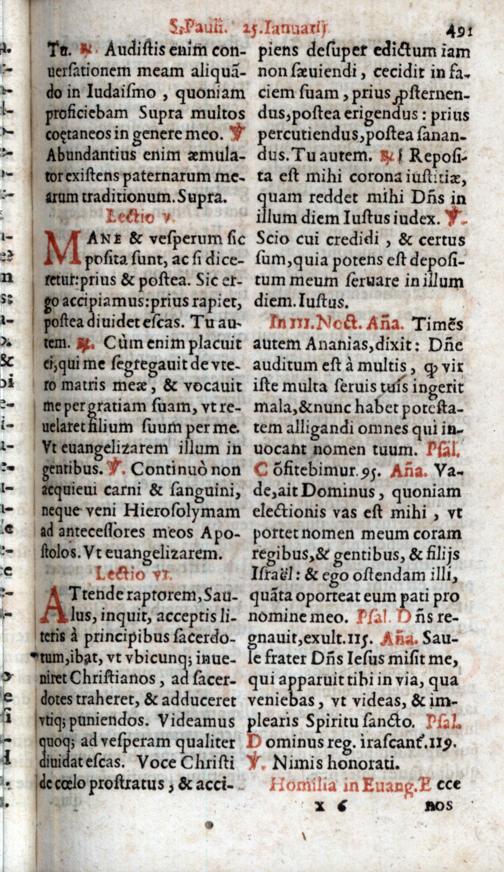 S. Pauli. 25. Ianuarij 491
Tu. ℟. Audistis enim con-
uersationem meam aliquã-
do in Iudaismo, quoniam
proficiebam Supra multos
coętaneos in genere meo. ℣
Abundantius enim æmula-
tor existens paternarum me-
arum traditionum. Supra.
Lectio v.
MANE & vesperum sic
posita sunt, ac si dice-
retur: prius & postea. Sic er-
go accipiamus: prius rapiet,
postea diuidet escas. Tu au-
tem. ℟. Cùm enim placuit
ei, qui me segregauit de vte-
ro matris meæ, & vocauit
me per gratiam suam, vt re-
uelaret filium suum per me.
Vt euangelizarem illum in
gentibus. ℣. Continuò non
acquieui carni & sanguini,
neque veni Hierosolymam
ad antecessores meos Apo-
stolos. Vt euangelizarem.
Lectio vi.
ATtende raptorem, Sau-
lus, inquit, acceptis li-
teris à principibus sacerdo-
tum, ibat, vt vbicunq; inue-
niret Christianos, ad sacer-
dotes traheret, & adduceret
vtiq; puniendos. Videamus
quoq; ad vesperam qualiter
diuidat escas. Voce Christi
de cœlo prostratus, & acci-
piens desuper edictum iam
non sæuiendi, cecidit in fa-
ciem suam, prius ꝓsternen-
dus, postea erigendus: prius
percutiendus, postea sanan-
dus. Tu autem. ℟. Reposi-
ta est mihi corona iustitiæ,
quam reddet mihi Dñs in
illum diem Iustus iudex. ℣.
Scio cui credidi, & certus
sum, quia potens est deposi-
tum meum seruare in illum
diem. Iustus.
In III. Noct. Aña. Timẽs
autem Ananias, dixit: Dñe
auditum est à multis, ꝙ vir
iste multa seruis tuis ingerit
mala, & nunc habet potesta-
tem alligandi omnes qui in-
uocant nomen tuum. Psal.
Cõfitebimur. 95. Aña. Va-
de, ait Dominus, quoniam
electionis vas est mihi, vt
portet nomen meum coram
regibus, & gentibus, & filijs
Israël: & ego ostendam illi,
quãta oporteat eum pati pro
nomine meo. Psal. Dñs re-
gnauit, exult. 115. Aña. Sau-
le frater Dñs Iesus misit me,
qui apparuit tibi in via, qua
veniebas, vt videas, & im-
plearis Spiritu sancto. Psal.
Dominus reg. irascant̃. 119.
℣. Nimis honorati.
Homilia in Euang. Ecce
X 6 nos